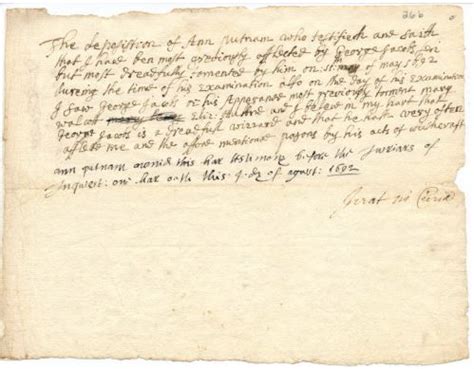 266
The deposistion of Ann Putnam who testifieth and saith
that I have ben most greviously afflected by George Jacobs sen
but most dreadfully tormented by him on of may 1692
dureing the time of his Examination also on the day of his Examination
I saw George Jacobs or his Apperance most greviously torment mary
walcott Eliz: and I beleve in my hart that
George Jacobs is a dreadfull wizzard and that he hath very often
afflected me and the affore mentioned parsons by his acts of wichcraft
ann putnam owned this har testimony before the Juriars of
Inquest: one har oath this 4: dy of agust: 1692
Jurat in Curia